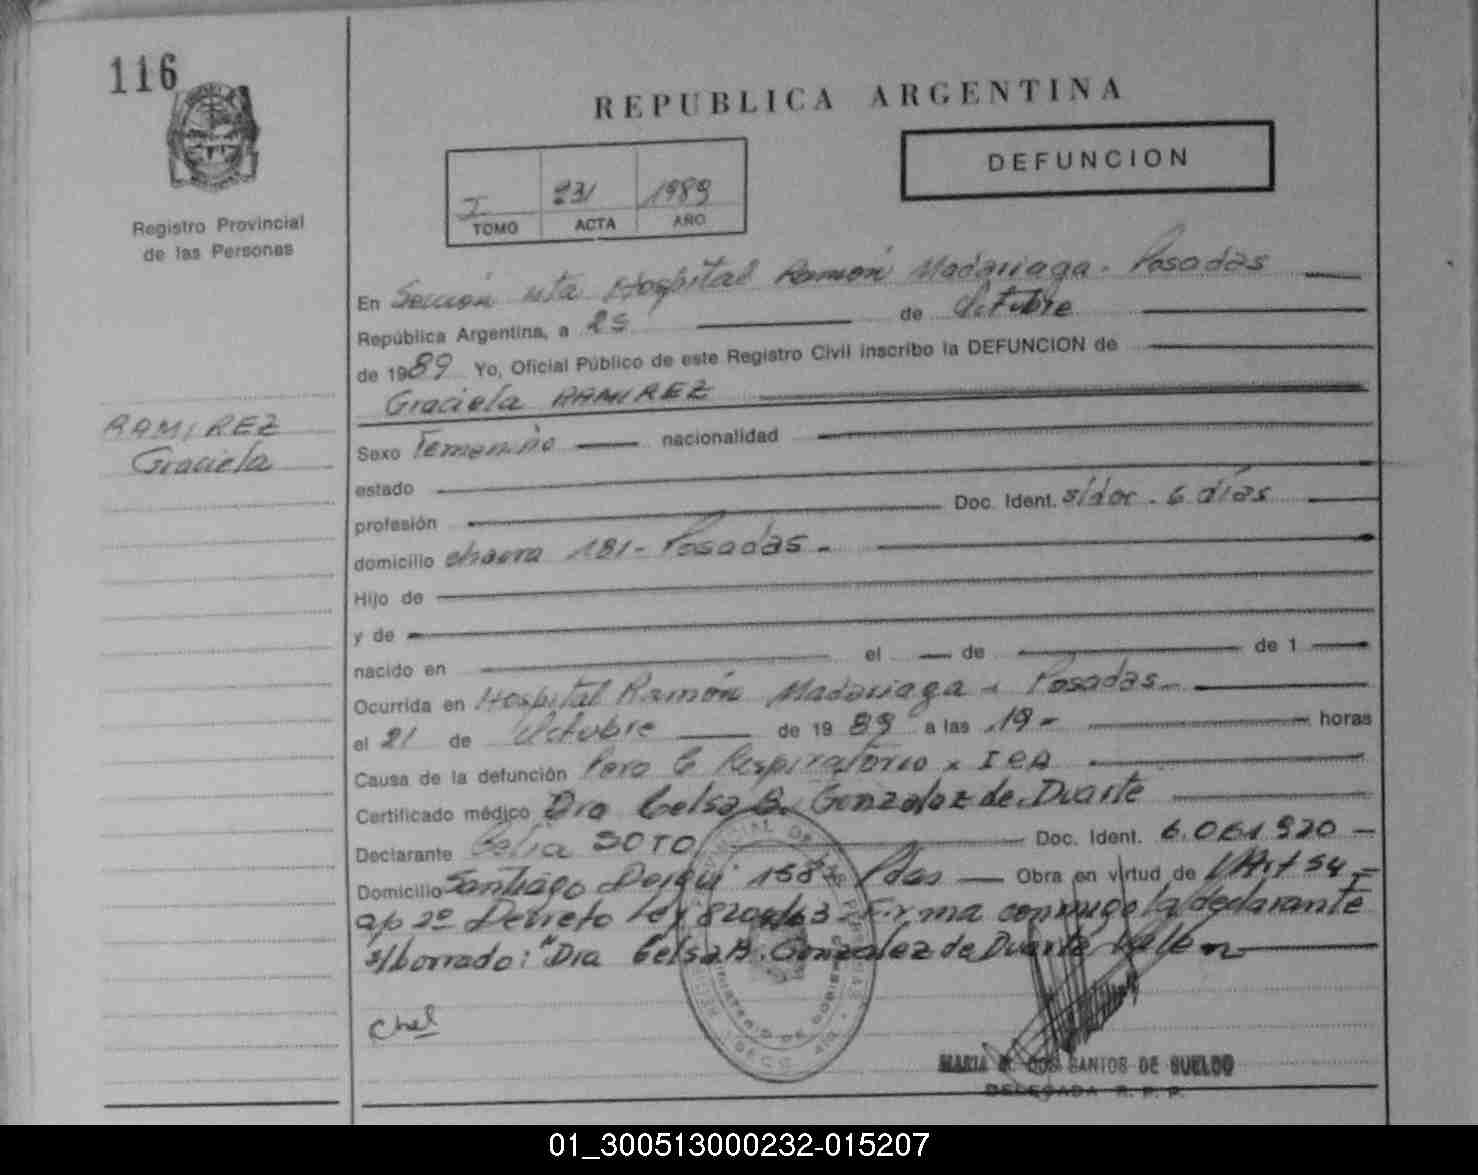 116
REPUBLICA ARGENTINA
DEFUNCION
I 231 1989
TOMO ACTA AÑO
Registro Provincial
de las Personas
En Sección Hospital Ramón Madariaga - Posadas
República Argentina, a 25 de Octubre
de 1989 Yo, Oficial Público de este Registro Civil inscribo la DEFUNCION de
Graciela RAMIREZ
RAMIREZ
Graciela
Sexo Femenino nacionalidad
estado
profesión Doc. Ident. s/doc - 6 días
domicilio chacra 181 - Posadas -
Hijo de
y de
nacido en el de de 1
Ocurrida en Hospital Ramón Madariaga - Posadas -
el 21 de Octubre de 1989 a las 19 - horas
Causa de la defunción Paro C Respiratorio x
Certificado médico Dra Celsa B. Gonzalez de Duarte
Declarante Celia SOTO Doc. Ident. 6.061.920 -
Domicilio Santiago Pdas Obra en virtud de l/Art 54 -
ap 2º Decreto Ley 8204/63 - Firma conmigo la declarante
s/borrado: "Dra Celsa B. Gonzalez de Duarte
Chel
MARIA DOS SANTOS DE SUELDO
DELEGADA R. P. P.
01_300513000232-015207